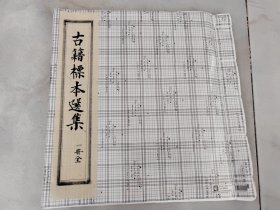 古籍標本選集
一冊全